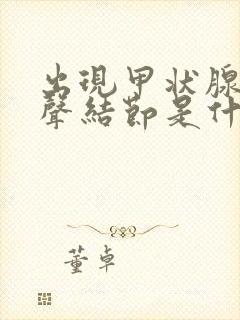 出現甲状腺
聲結節是什
董卓